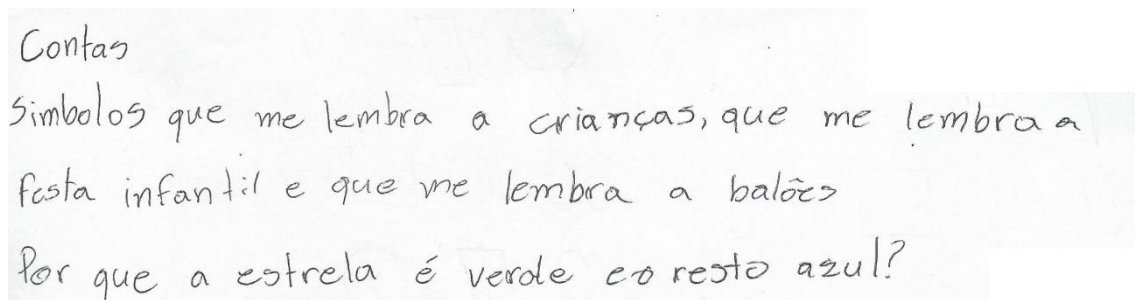 Contas
Simbolos que me lembra a crianças, que me lembra a
festa infantil e que me lembra a balões
Por que a estrela é verde e o resto azul?